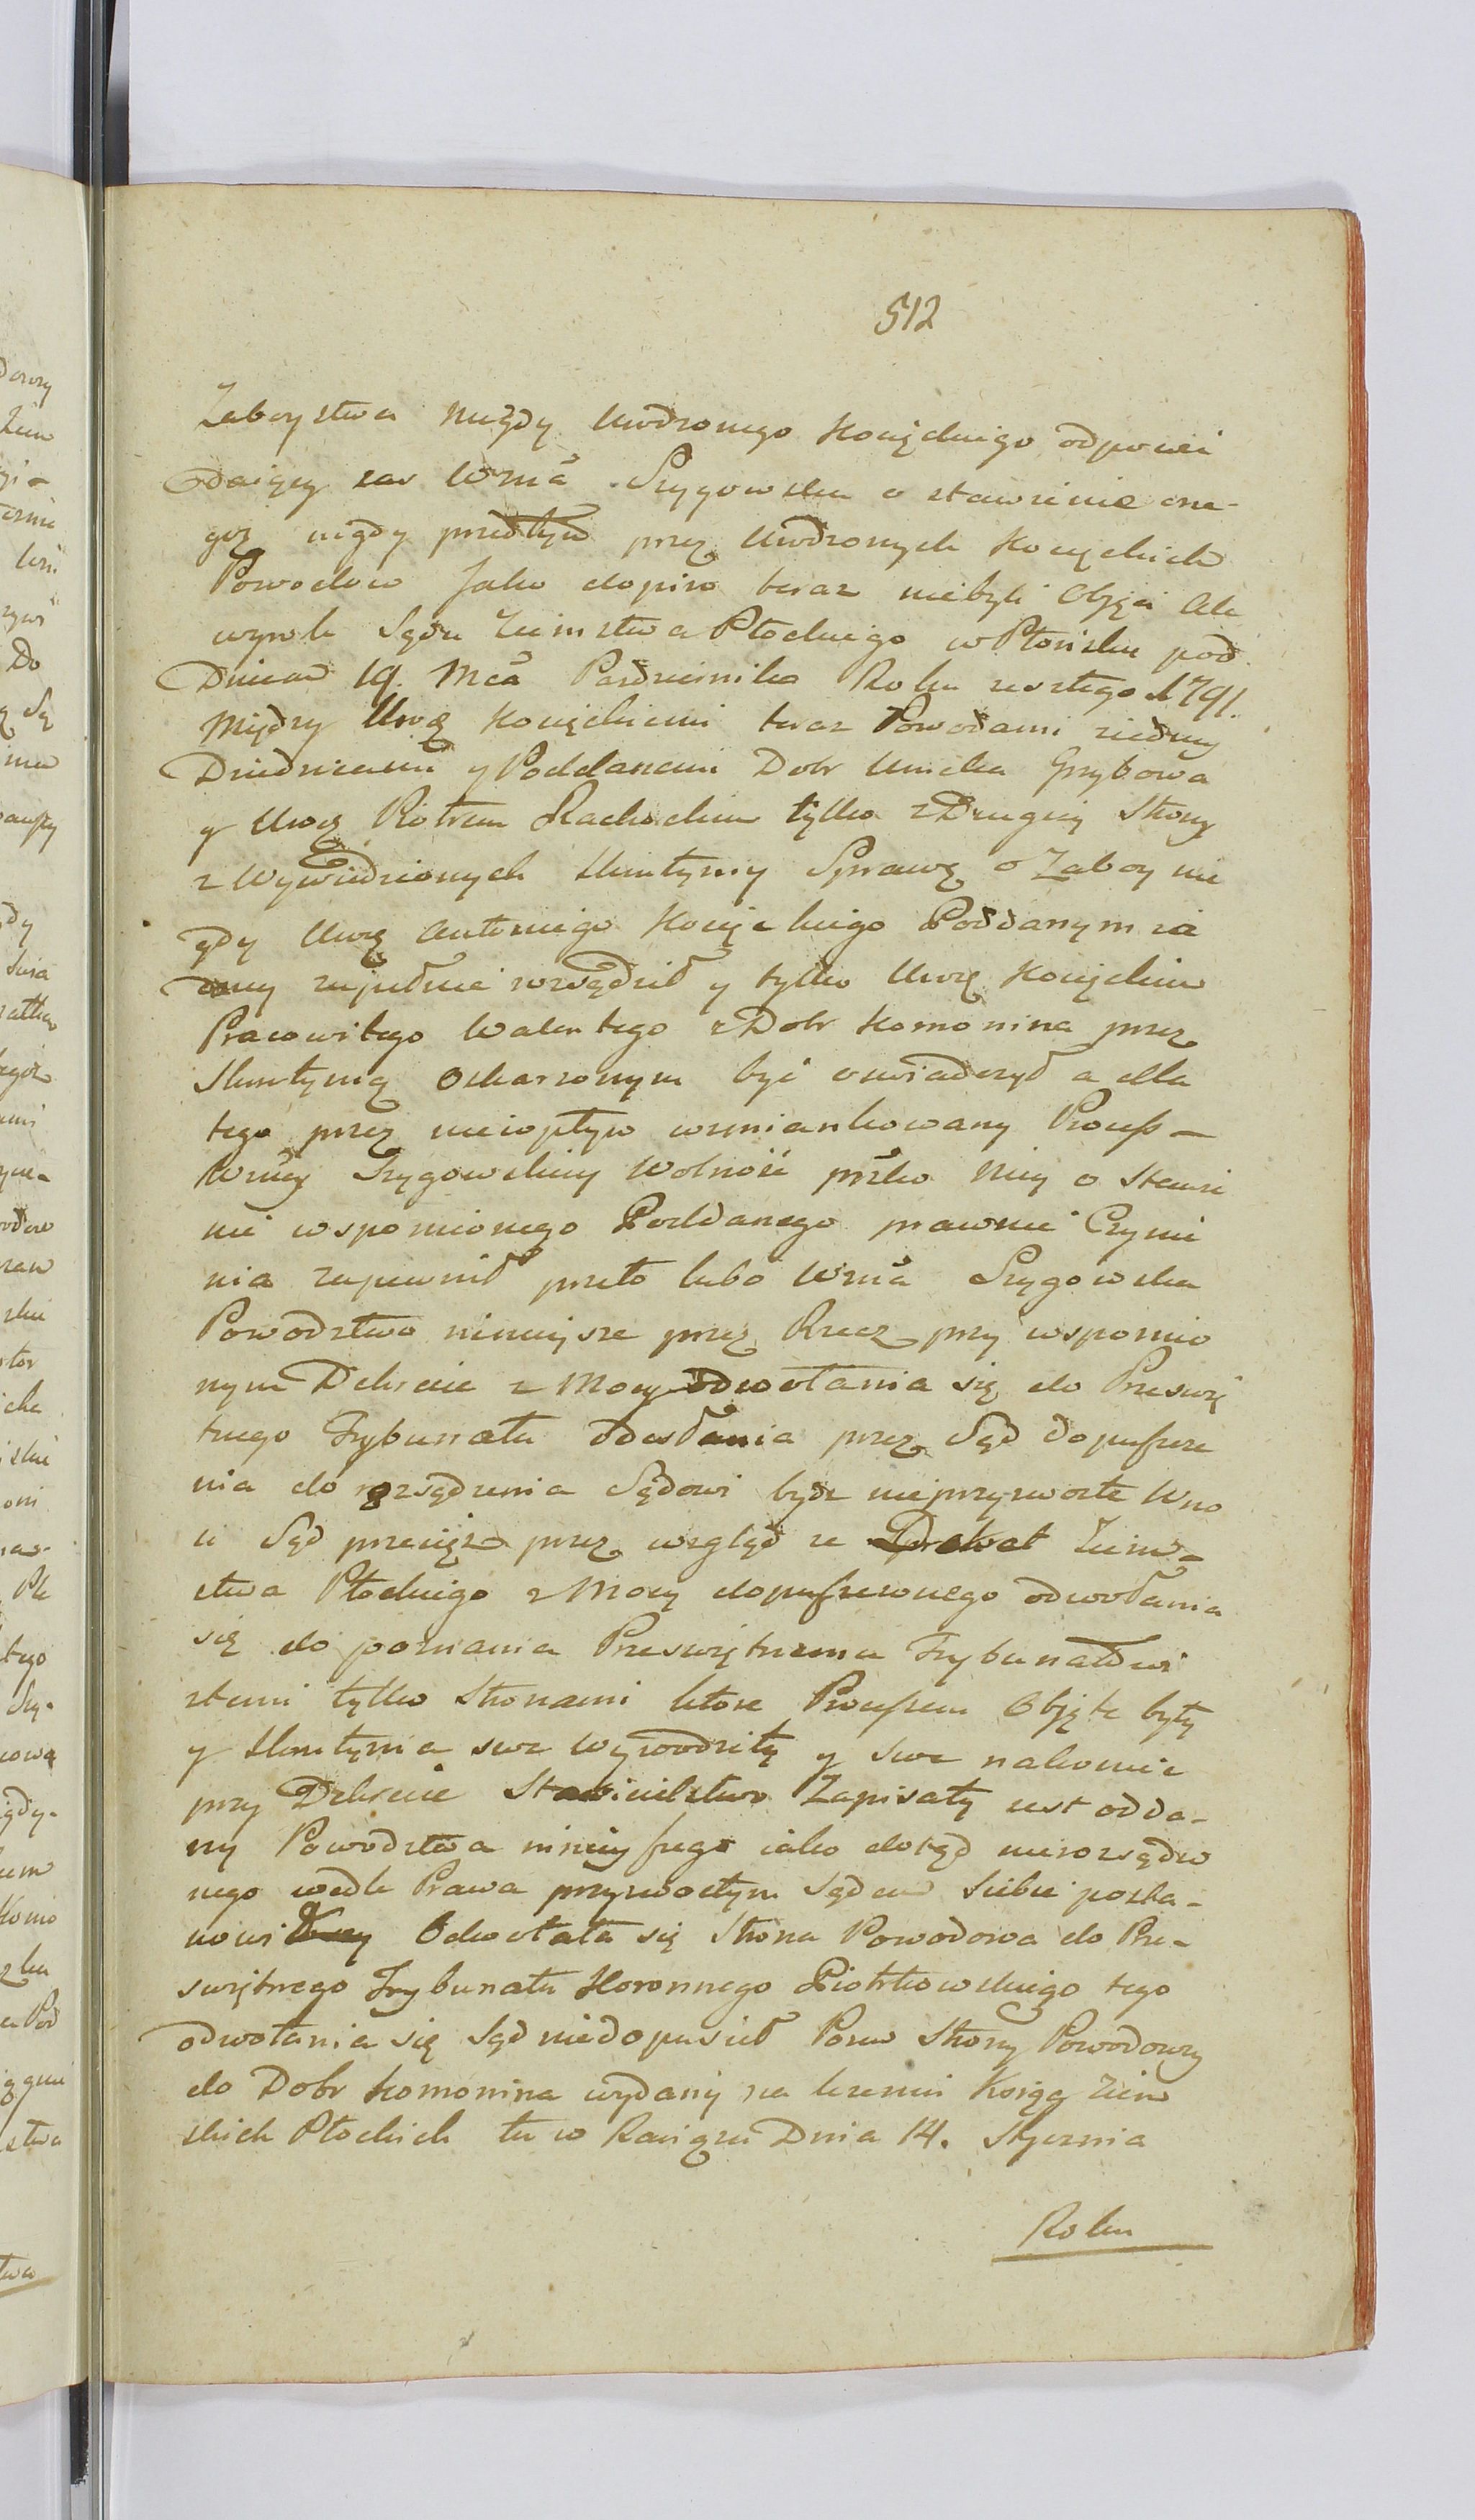 512
Zaboystwa niegdy Urodzonego Kocięckiego odpowei
daiącey zas Wzna Szygowska o stawienie one-
goz nigdy przedtym przez Urodzonych Kocięckich
Powodow Jako dopiro teraz niebyli Objęci Ale
wyrok Sądu Ziemstwa Płockiego w Płońsku pod
Dniem 19. Mca Pazdziernika Roku zeszłego 1791.
Między Urę Kocięckiemi teraz Powodami ziedney
Dziedzicami y Poddanemi Dobr Unieka Grzybowa
y Urę Piotrem Rachockim tylko z Drugiey Strony
z Wywiedzionych Skrutyniy Sprawę o Zaboy nie
gdy Urę Antoniego Kocięckiego Poddanym za
dany zupełnie rozsądził y tylko Urę Kocięckim
Pracowitego Walentego z Dobr Komonina przez
Skrutynią Oskarzonym być oswiadczył a dla
tego przez niewpływ wzmiankowany Process
Wzney Szygowskiey Wolność przko Niey o Stawie
nie wspomionego Poddanego prawnie Czynie
nia zapewnił przeto lubo Wzna Szygowska
Powodztwo ninieysze przez Rzecz przy wspomio
nym Dekrecie z Mocy odwołania się do Przeswię
tnego Trybunału odesłania przez Sąd dopuszcze
nia do rozsądzenia Sądowi bydz nieprzyzwoite Wno
si Sąd przecięz przez wzgląd ze Dekret Ziem-
stwa Płockiego z Mocy dopuszczonego odwołania
się do poznania Przeswiętnemu Trybunałowi
ztemi tylko Stronami ktore Processem Objęte były
y Skrutynia swe Wywodziły y swe nakoniec
przy Dekrecie Stawicielstwo Zapisały iest odda-
ny Powodztwa ninieyszego iako dotąd nierozsądzo
nego wedle Prawa przyzwoitym Sądem Siebie posta-
nowi Odwołała się Strona Powodowa do Prze-
swiętnego Trybunału Koronnego Piotrkowskiego tego
odwołania się Sąd niedopuścił Pozew Strony Powodowey
do Dobr Komonina wydany na brzemie Ksiąg Ziem
skich Płockich tu w Raciążu Dnia 14. Stycznia
Roku